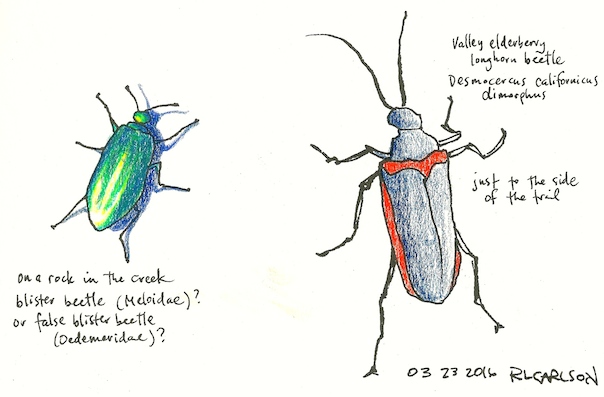 Valley elderberry
longhorn beetle
Desmocercus californicus
dimorphus
just to the side
of the trail
on a rock in the creek
blister beetle (Meloidae)?
or false blister beetle
(Oedemeridae)?
03 23 2016 RLCARLSON